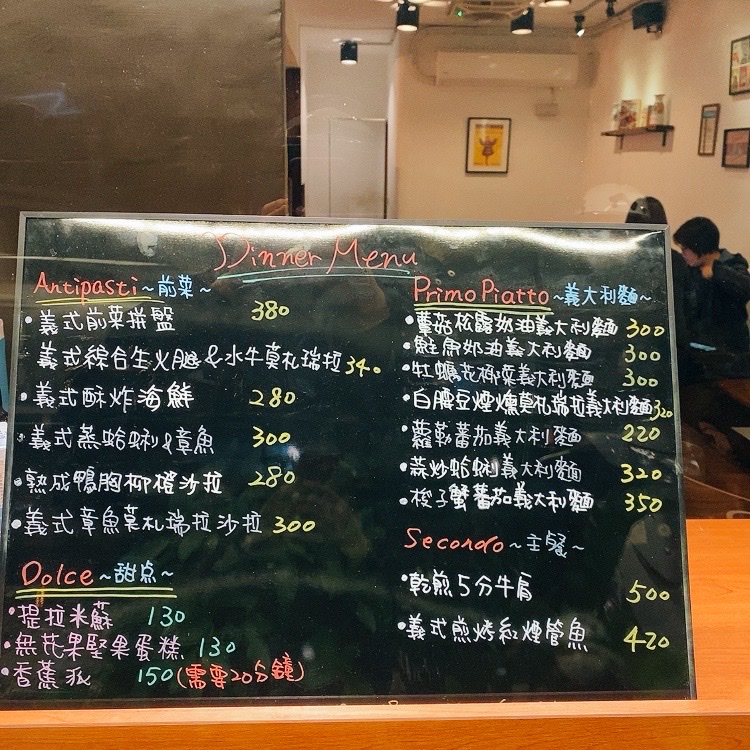 Dinner Menu
Antipasti~前菜~
•義式前菜拼盤 380
義式綜合生火腿&水牛莫札瑞拉 340
•義式酥炸海鮮 280
•義式蒸蛤蜊&章魚 300
•熟成鴨胸柳橙沙拉 280
•義式章魚莫札瑞拉沙拉 300
Dolce~甜点~
•提拉米蘇 130
•無花果堅果蛋糕 130
•香蕉派 150(需要20分鐘)
Primo Piatto~義大利麵~
•蘑菇松露奶油義大利麵 300
•鮭魚奶油義大利麵 300
•牡蠣花椰菜義大利麵 300
•白腰豆煙燻莫札瑞拉義大利麵 320
•蘿勒蕃茄義大利麵 220
•蒜炒蛤蜊義大利麵 320
•梭子蟹蕃茄義大利麵 350
Secondo~主餐~
•乾煎5分牛肩 500
•義式煎烤紅煙管魚 420